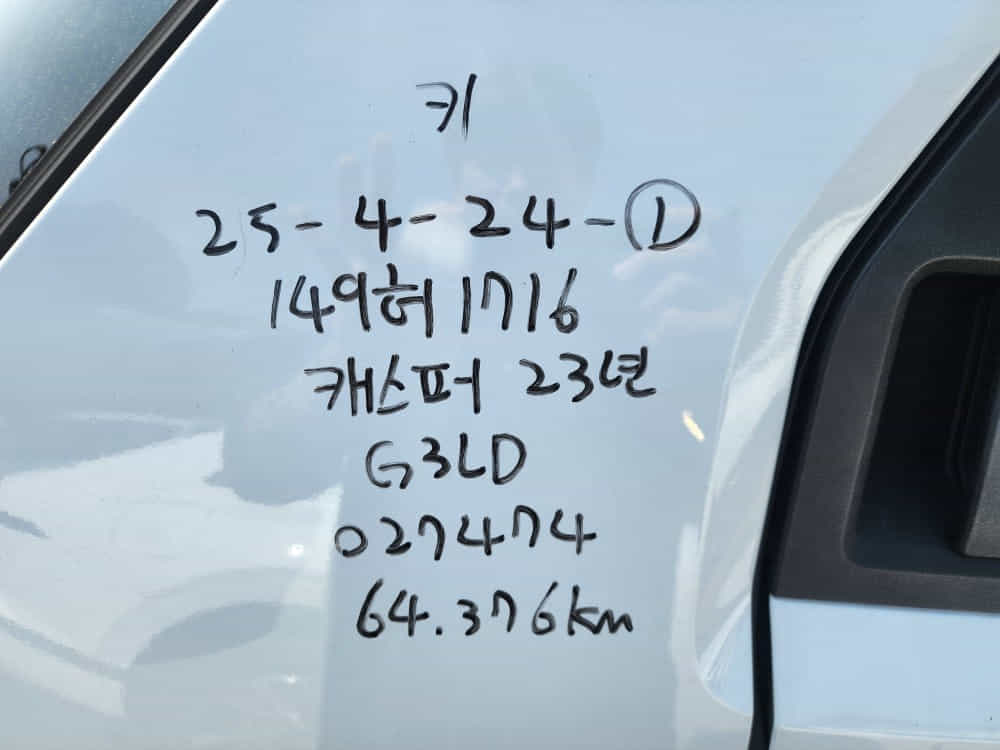 키
25-4-24-①
149허1716
캐스퍼 23년
G3LD
027474
64.376km